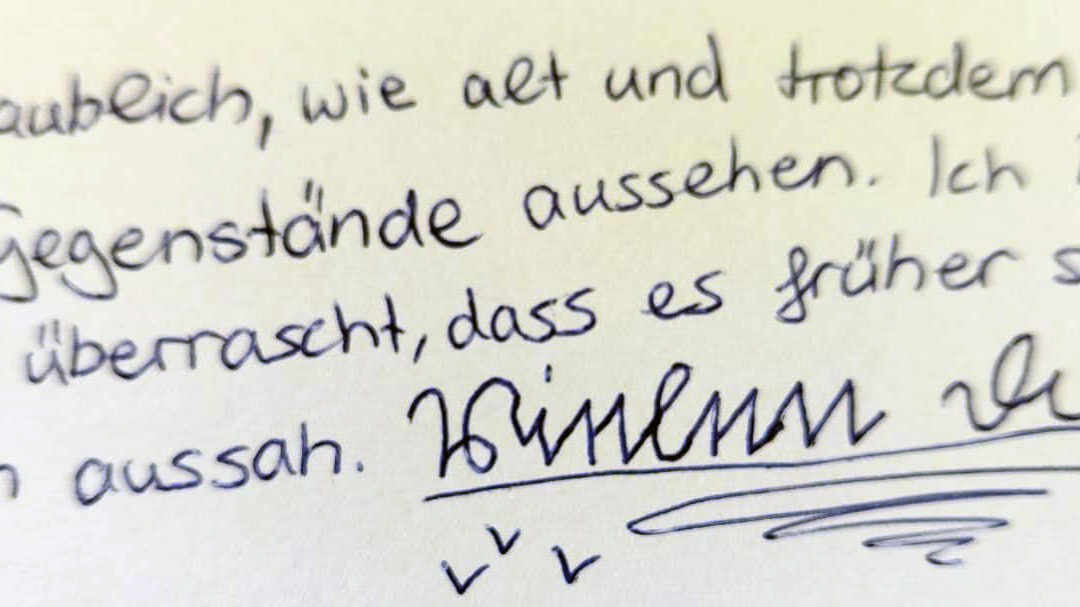 aublich, wie alt und trotzdem
Gegenstände aussehen. Ich
überrascht, dass es früher s
n aussah.